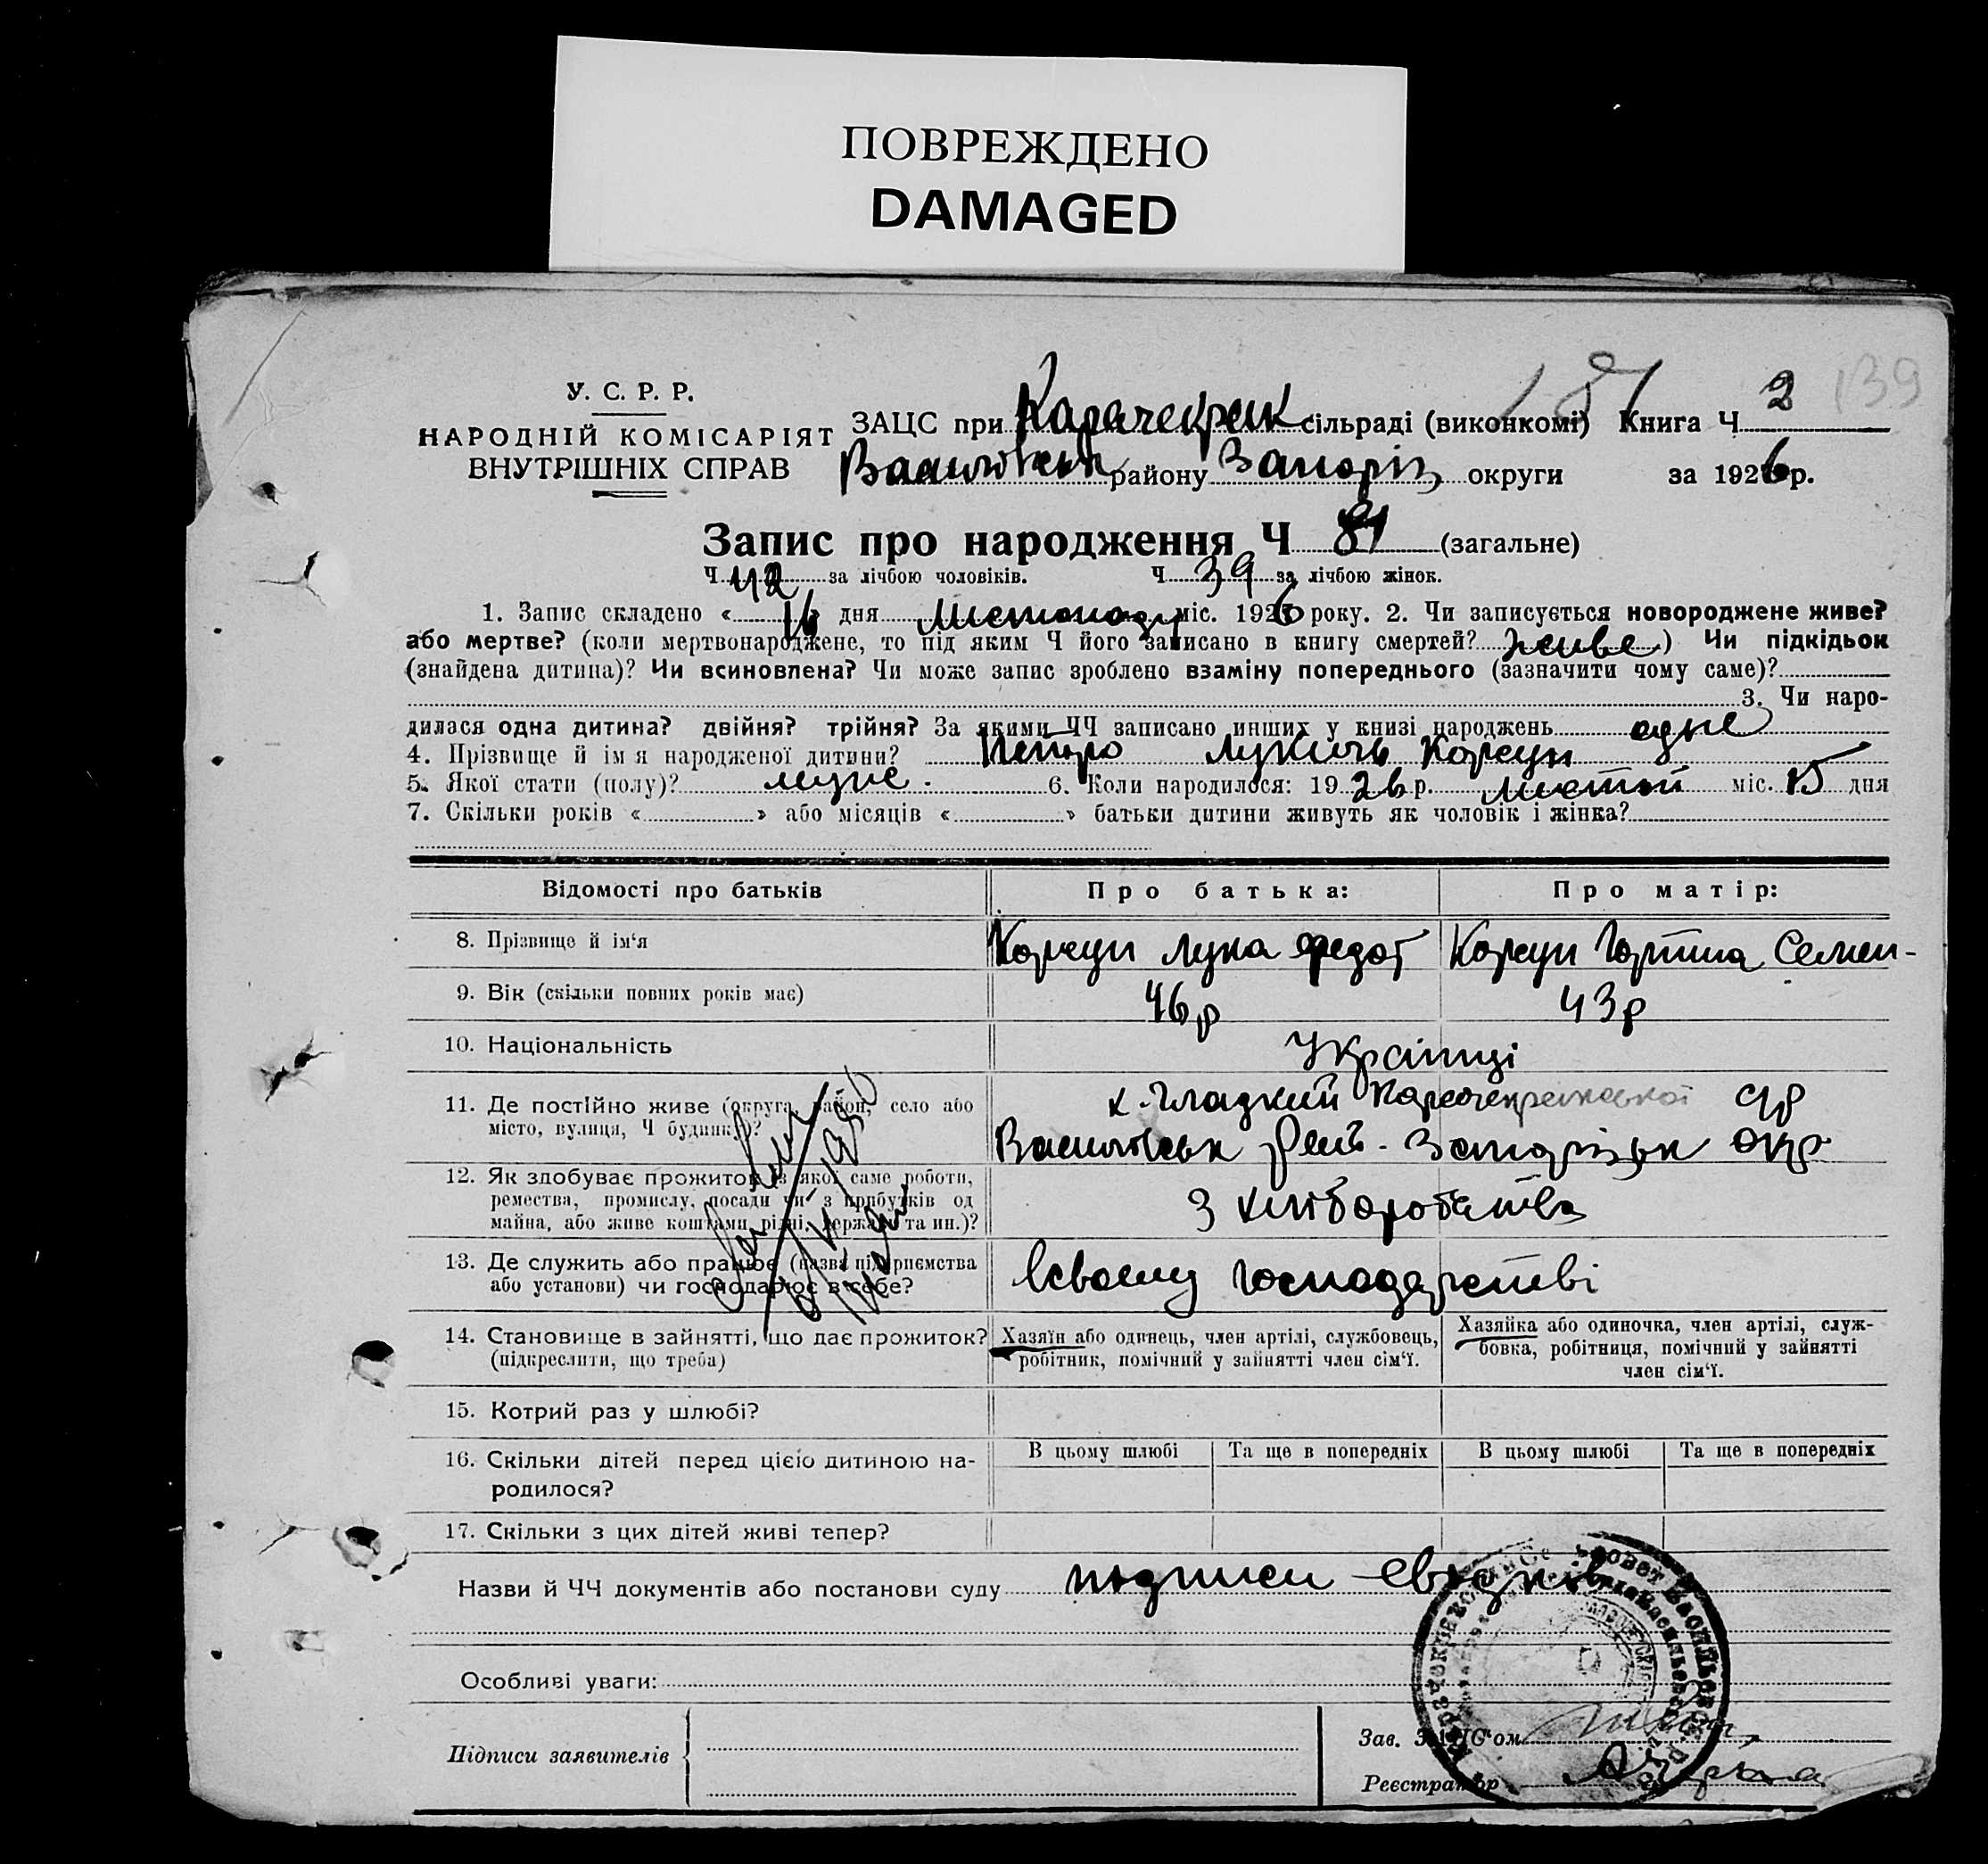 ПОВРЕЖДЕНО
DAMAGED
139
181
У. С. Р. Р.
НАРОДНІЙ КОМІСАРІЯТ
ВНУТРІШНІХ СПРАВ
ЗАЦС при Карачекрак сільраді (виконкомі) Книга Ч 2
Василівськ району Запоріз округи за 1926 р.
Запис про народження Ч 81 (загальне)
Ч 42 за лічбою чоловіків. Ч 39 за лічбою жінок.
1. Запис складено « 16 » дня Листопаду міс. 1926 року. 2. Чи записується новороджене живе?
або мертве? (коли мертвонароджене, то під яким Ч його записано в книгу смертей? живе ) Чи підкідьок
(знайдена дитина)? Чи всиновлена? Чи може запис зроблено взаміну попереднього (зазначити чому саме)?
3. Чи наро-
дилася одна дитина? двійня? трійня? За якими ЧЧ записано инших у книзі народжень одне
4. Прізвище й ім я народженої дитини? Петро Лукичь Корсун
5. Якої стати (полу)? муже. 6. Коли народилося: 19 26 р. листоп міс. 15 дня
7. Скільки років « » або місяців « » батьки дитини живуть як чоловік і жінка?
Відомості про батьків Про батька: Про матір:
8. Прізвище й ім‘я Корсун Лука Федот Корсун Горпина Семен-
9. Вік (скільки повних років має) 46 р 43 р
10. Національність Українці
11. Де постійно живе (округа, район, село або
місто, вулиця, Ч будинку)?
х. Гладкий Карачекраковської с/р
Василівськ Рай. Запорізьк окр
12. Як здобуває прожиток (з якої саме роботи,
ремества, промислу, посади чи з прибутків од
майна, або живе коштами рідні, держави та ин.)?
З хліборобства
13. Де служить або працює (назва підприємства
або установи) чи господарює в себе?
Всвоему господарстві
14. Становище в зайнятті, що дає прожиток?
(підкреслити, що треба)
Хазяїн або одинець, член артілі, службовець,
робітник, помічний у зайнятті член сім‘ї.
Хазяйка або одиночка, член артілі, служ-
бовка, робітниця, помічний у зайнятті
член сім‘ї.
15. Котрий раз у шлюбі?
16. Скільки дітей перед цією дитиною на-
родилося?
В цьому шлюбі Та ще в попередніх В цьому шлюбі Та ще в попередніх
17. Скільки з цих дітей живі тепер?
Назви й ЧЧ документів або постанови суду подписи свідків
Особливі уваги:
Підписи заявителів
Зав. ЗАЦС‘ом
Реєстратор